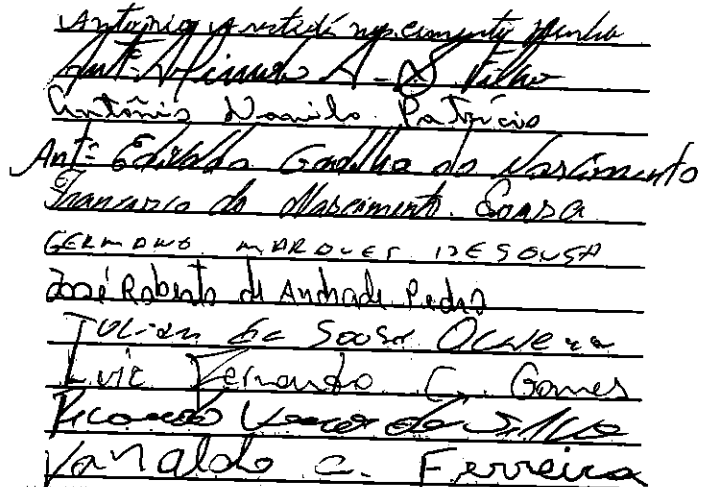 Antonio nascimento
Antº A. S. Filho
Antônio Danilo Patrício
Antº Edivaldo Gadilha do Nascimento
Francisco do Nascimento Sousa
GERMANO MARQUES DE SOUSA
José Roberto de Andrade Pedro
Julian de Sousa Oliveira
Luiz Fernando C. Gomes
Ricardo da Silva
Vanaldo C. Ferreira